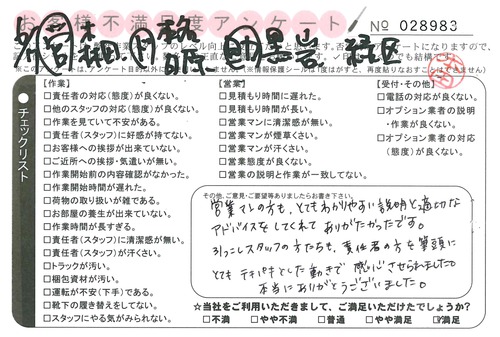 お客様不満足度アンケート
No 028983
チェックリスト
【作業】
□責任者の対応(態度)が良くない。
□他のスタッフの対応(態度)が良くない。
□作業を見ていて不安がある。
□責任者(スタッフ)に好感が持てない。
□お客様への挨拶が出来ていない。
□ご近所への挨拶・気遣いが無い。
□作業開始前の内容確認がなかった。
□作業開始時間が遅れた。
□荷物の取り扱いが雑である。
□お部屋の養生が出来ていない。
□作業時間が長すぎる。
□責任者(スタッフ)に清潔感が無い。
□責任者(スタッフ)が汗くさい。
□トラックが汚い。
□梱包資材が汚い。
□運転が不安(下手)である。
□靴下の履き替えをしてない。
□スタッフにやる気がみられない。
【営業】
□見積もり時間に遅れた。
□見積もり時間が長い。
□営業マンに清潔感が無い。
□営業マンが煙草くさい。
□営業マンが汗くさい。
□営業態度が良くない。
□営業の説明と作業が一致してない。
【受付・その他】
□電話の対応が良くない。
□オプション業者の説明
・作業が良くない。
□オプション業者の対応
(態度)が良くない。
その他、ご意見・ご要望等ありましたらお書き下さい。
営業マンの方も、とてもわかりやすい説明と適切な
アドバイスをしてくれてありがたかったです。
引っこしスタッフの方たちも、責任者の方を筆頭に
とてもテキパキとした動きで感心させられました。
本当にありがとうございました。
☆当社をご利用いただきまして、ご満足いただけたでしょうか?
□不満 □やや不満 □普通 □やや満足 ☑満足